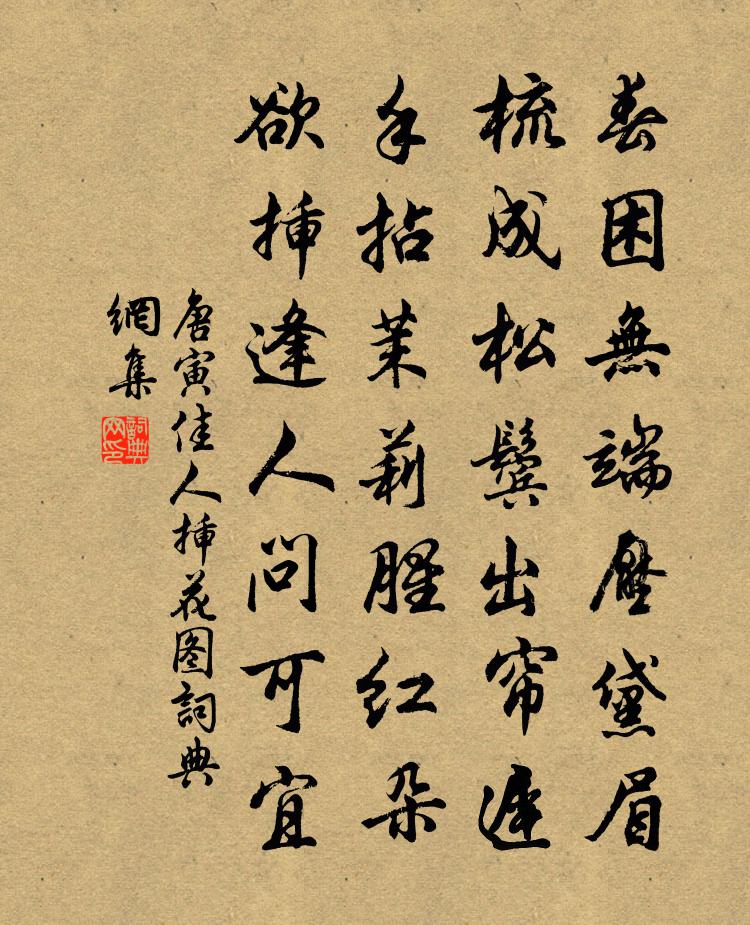 春困無端壓黛眉
梳成松鬓出帘遲
手拈茉莉腥红朵
欲揷逢人问可宜
唐寅佳人揷花图詞典
網集
詞典网印